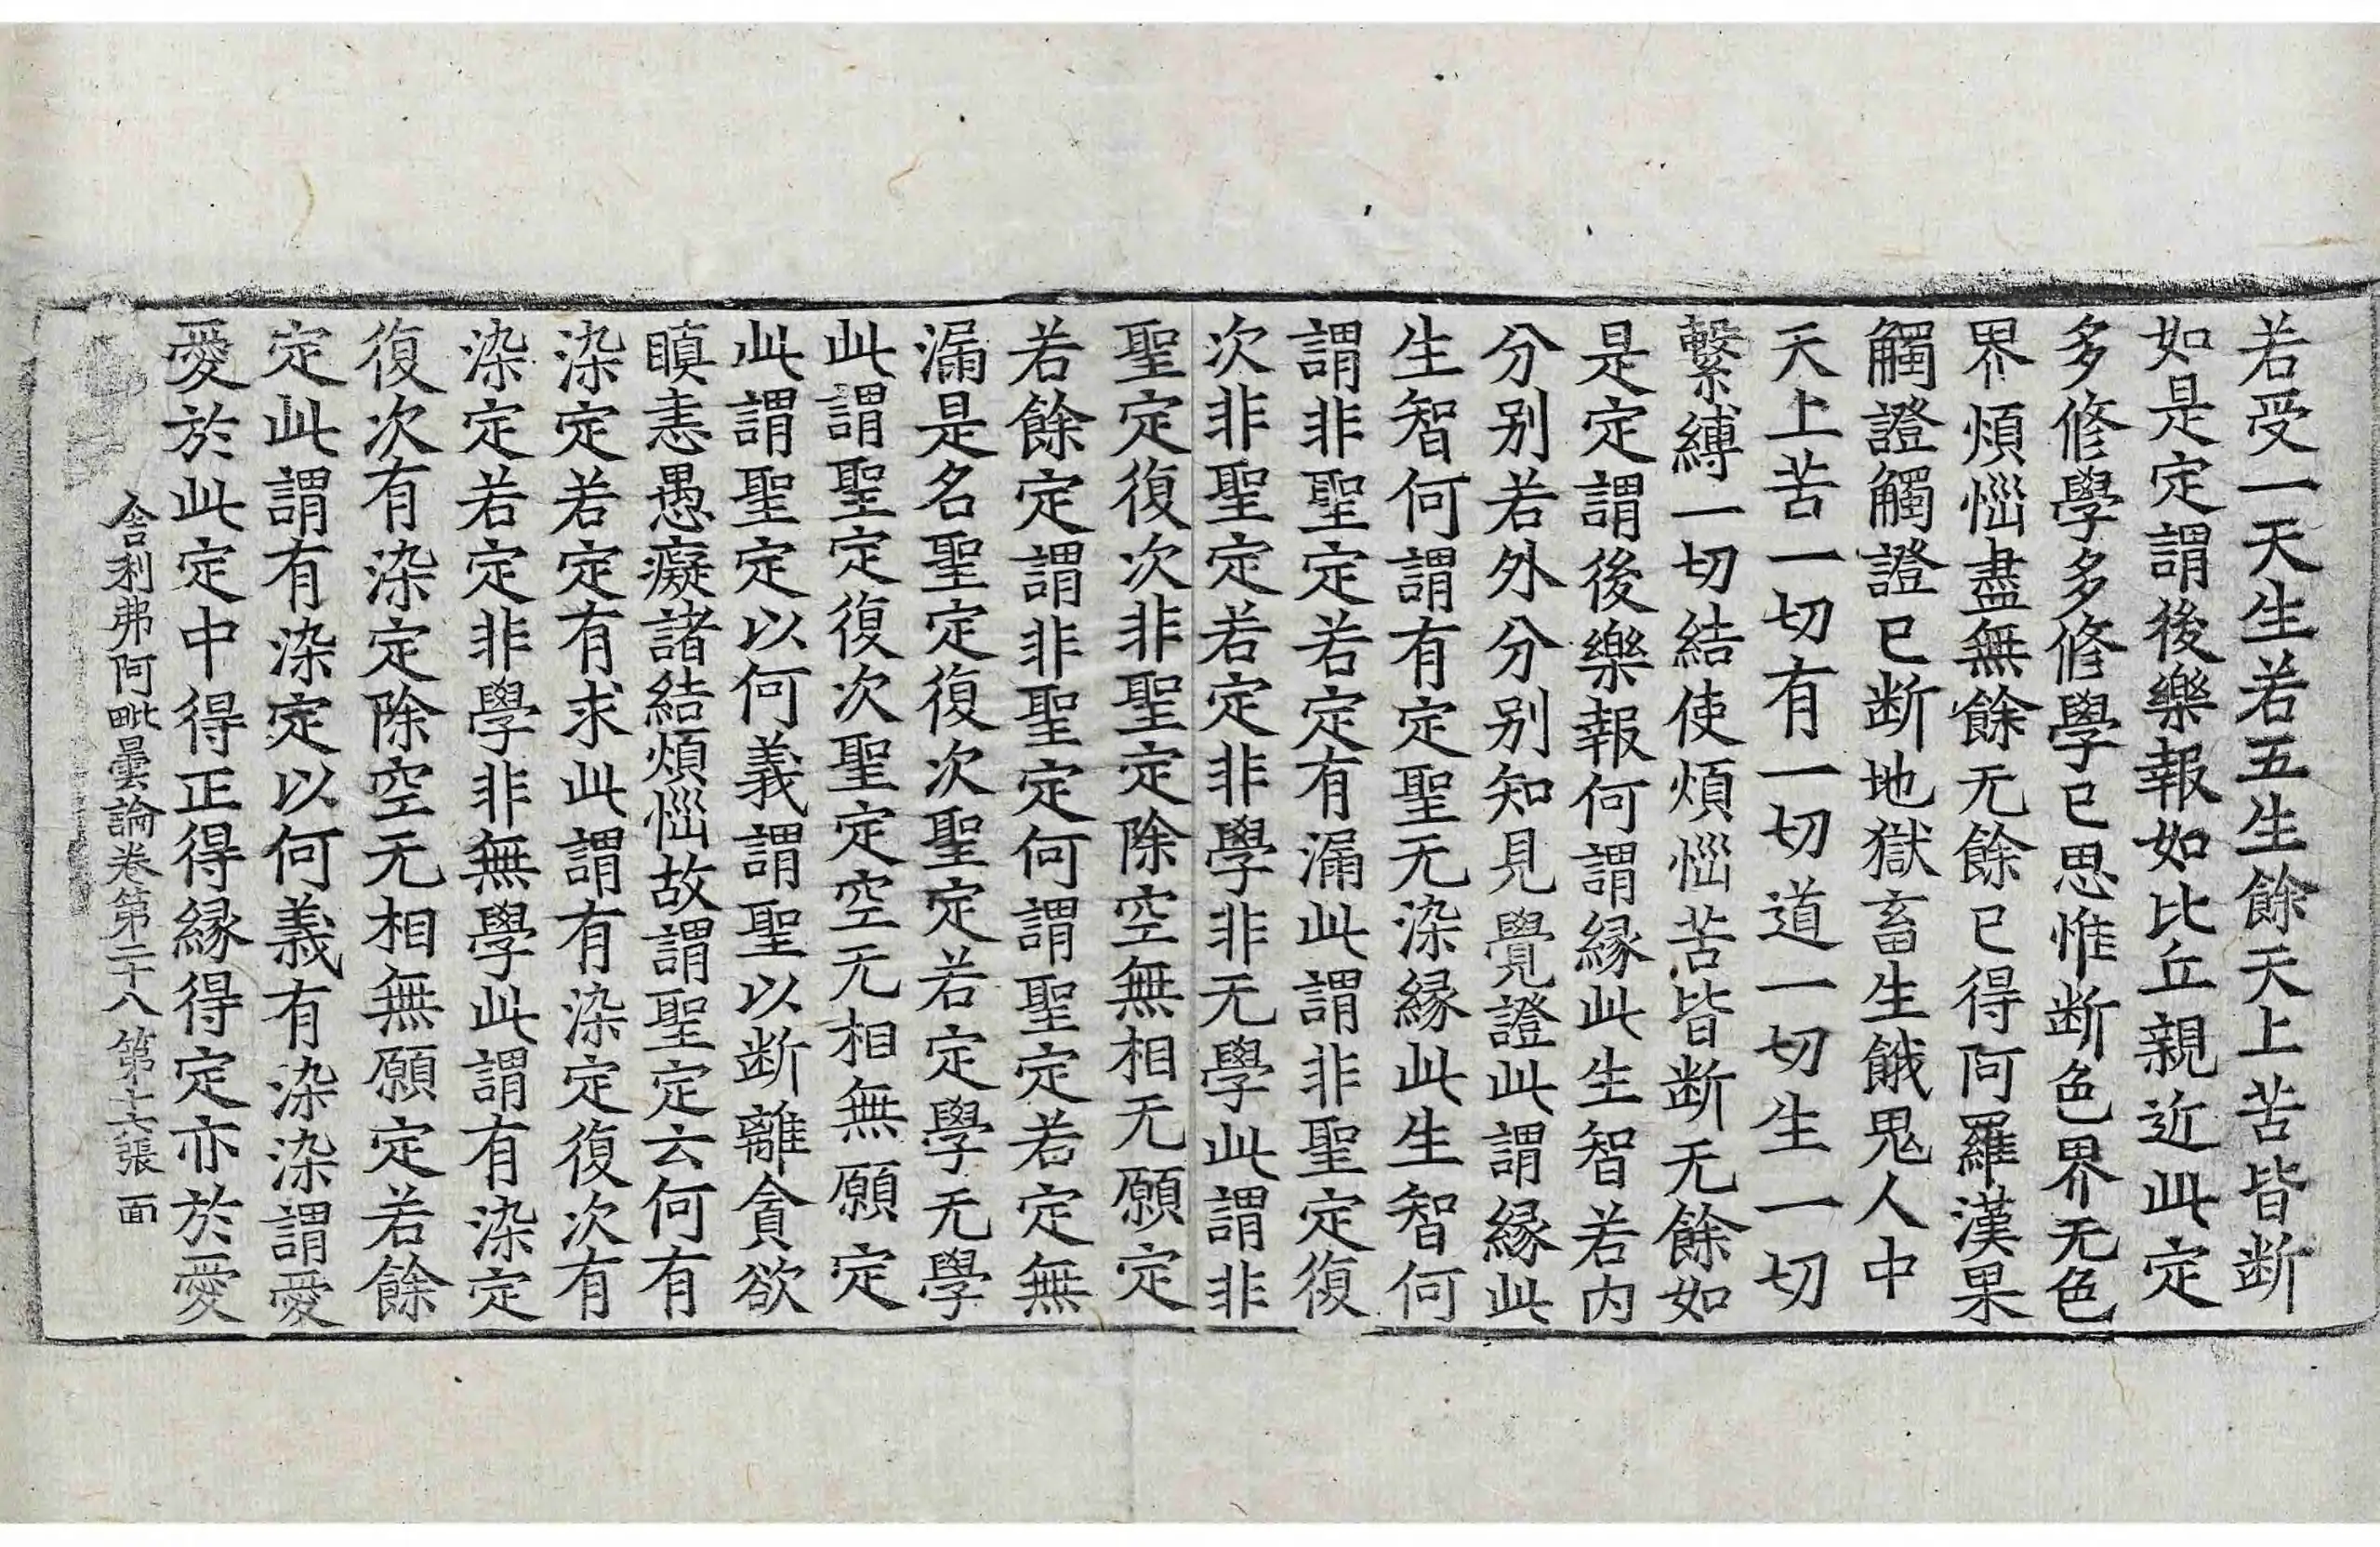 若受一天生若五生餘天上苦皆断
如是定謂後樂報如比丘親近此定
多修學多修學已思惟断色界无色
界煩惱盡無餘无餘已得阿羅漢果
觸證觸證已断地獄畜生餓鬼人中
天上苦一切有一切道一切生一切
繫縛一切結使煩惱苦皆断无餘如
是定謂後樂報何謂縁此生智若内
分别若外分别知見覺證此謂縁此
生智何謂有定聖无染縁此生智何
謂非聖定若定有漏此謂非聖定復
次非聖定若定非學非无學此謂非
聖定復次非聖定除空無相无願定
若餘定謂非聖定何謂聖定若定無
漏是名聖定復次聖定若定學无學
此謂聖定復次聖定空无相無願定
此謂聖定以何義謂聖以断離貪欲
瞋恚愚癡諸結煩惱故謂聖定云何有
染定若定有求此謂有染定復次有
染定若定非學非無學此謂有染定
復次有染定除空无相無願定若餘
定此謂有染定以何義有染染謂愛
愛於此定中得正得縁得定亦於愛
舎利弗阿毗曇論卷第二十八 第十六張 面